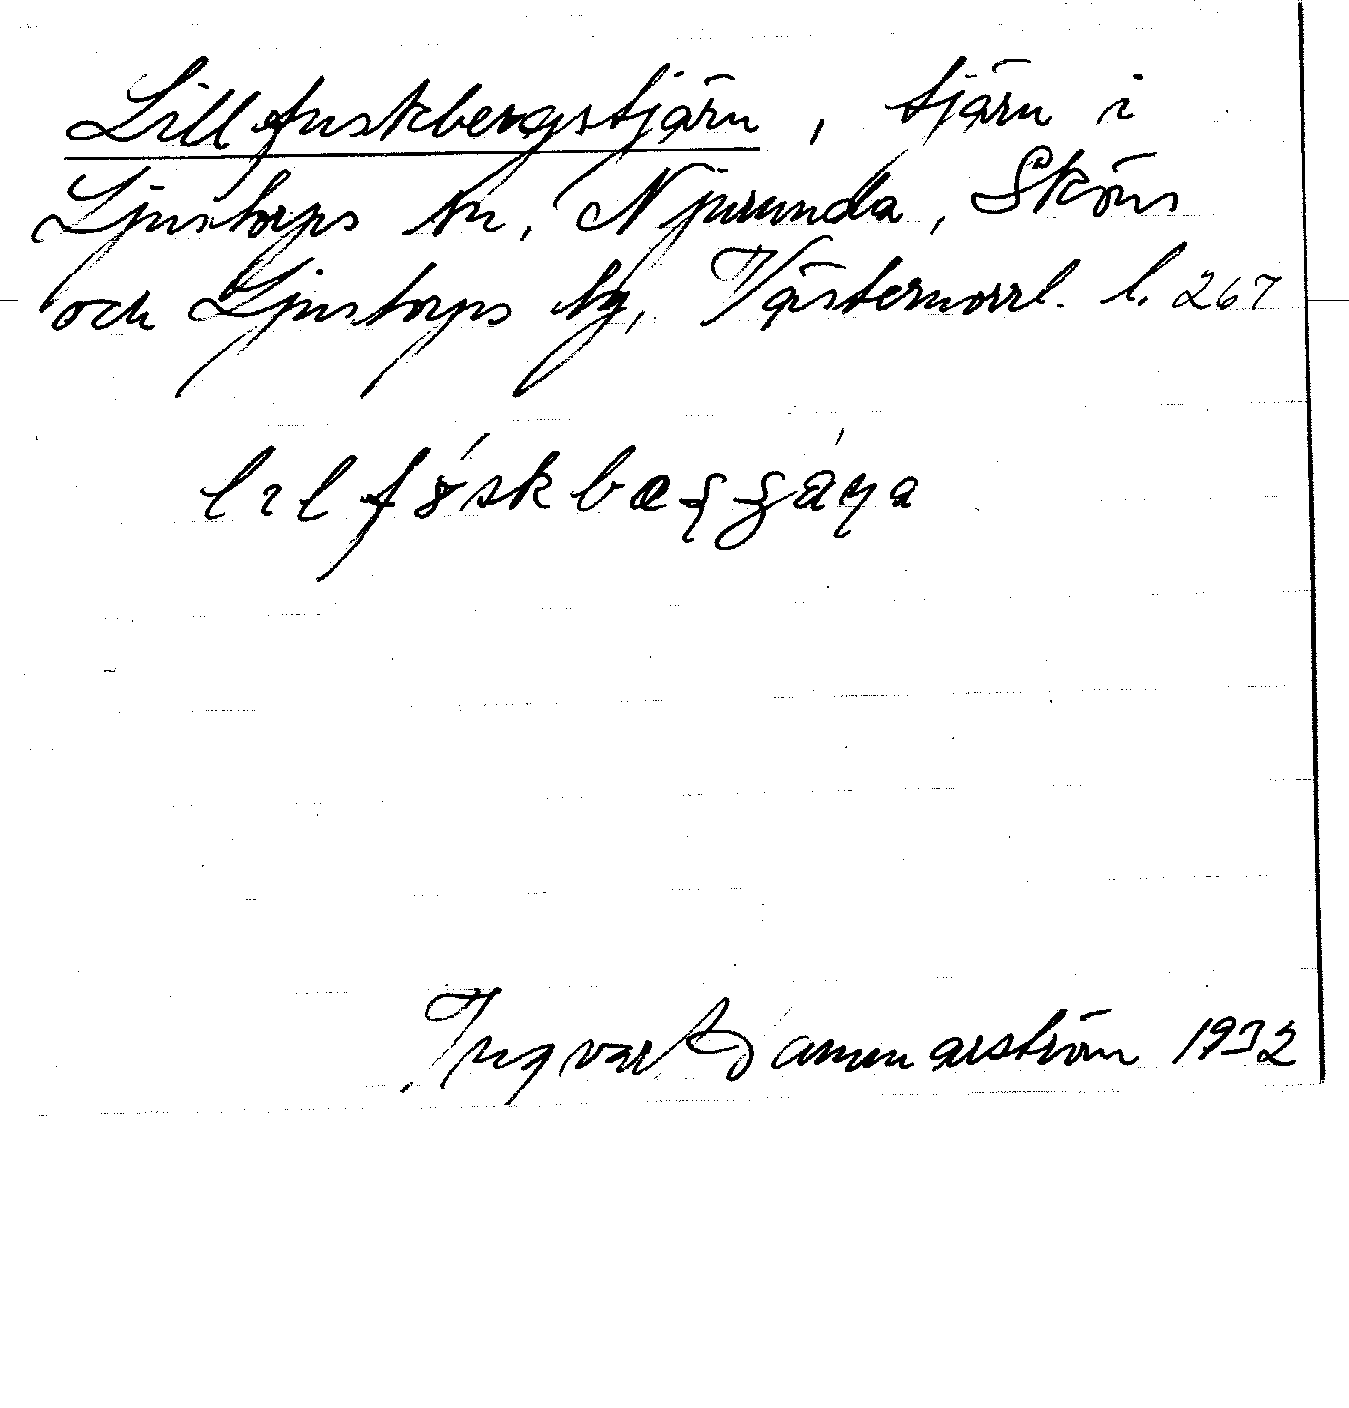 Lillfuskbergstjärn, tjärn i
Ljustorps sn, Njurunda, Sköns
och Ljustorps tg, Västernorrl. l. 267
Ingvar Hammarström 1932